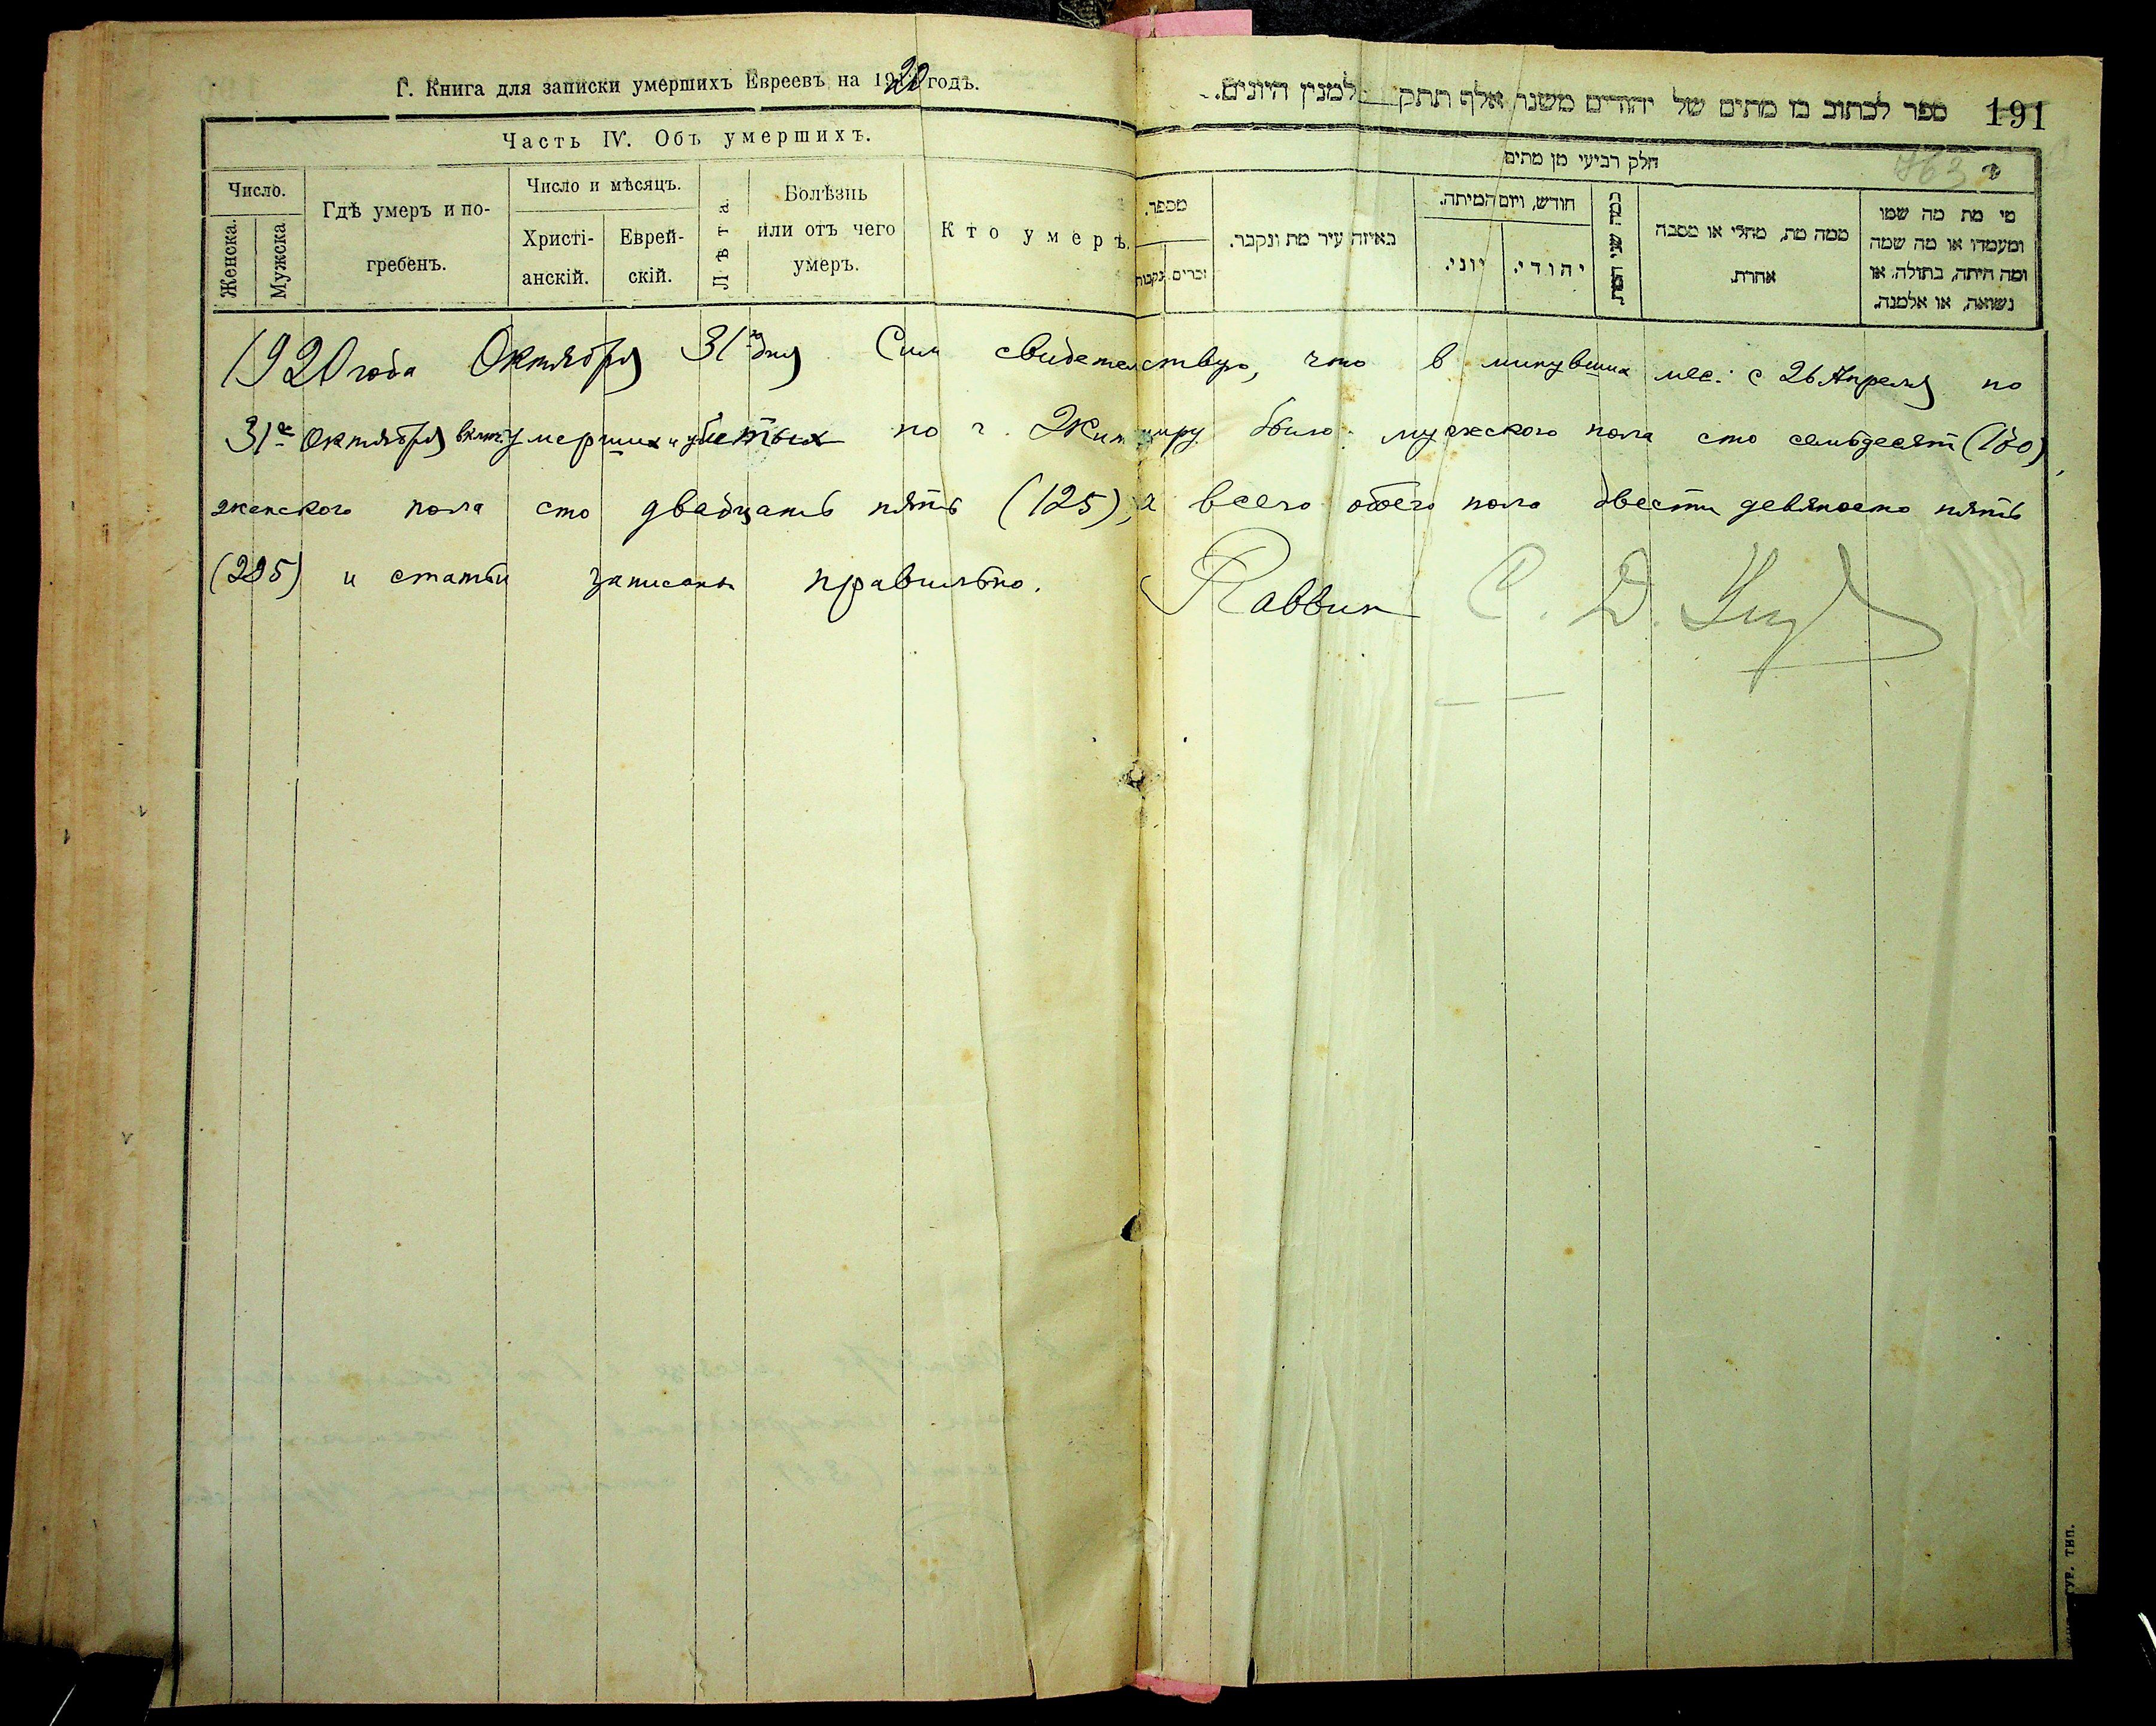 Г. Книга для записки умершихъ Евреевъ на 1920 годъ.
ספר לכתוב בו מתים של יהודים משנת אלף תתק למנין היונים.
191
Часть IV. Объ умершихъ.
חלק רביעי מן מתים
763
Число.
Женска.
Мужска
Гдѣ умеръ и по-
гребенъ.
Число и мѣсяцъ.
Христі-
анскій.
Еврей-
скій.
Лѣта.
Болѣзнь
или отъ чего
умеръ.
Кто умеръ.
מספר.
זכרים.
נקבות
באיזה עיר מת ונקבר.
חודש, ויום המיתה.
יוני.
יהודי.
כמה שני המת
ממה מת, מחלי או מסבה
אחרת.
מי מת מה שמו
ומעמדו או מה שמה
ומה היתה, בתולה, או
נשואה, או אלמנה.
1920 года Октября 31го дня Сим свидетельствую, что в минувших мес: с 26 Апреля по
31е Октября включ. умерших и убитых по г. Житомиру было: мужского пола сто семьдесят (170),
женского пола сто двадцать пять (125), а всего обоего пола двести девяносто пять
(295) и статьи записаны правильно. Раввин С. Д.
ГУБ. ТИП.